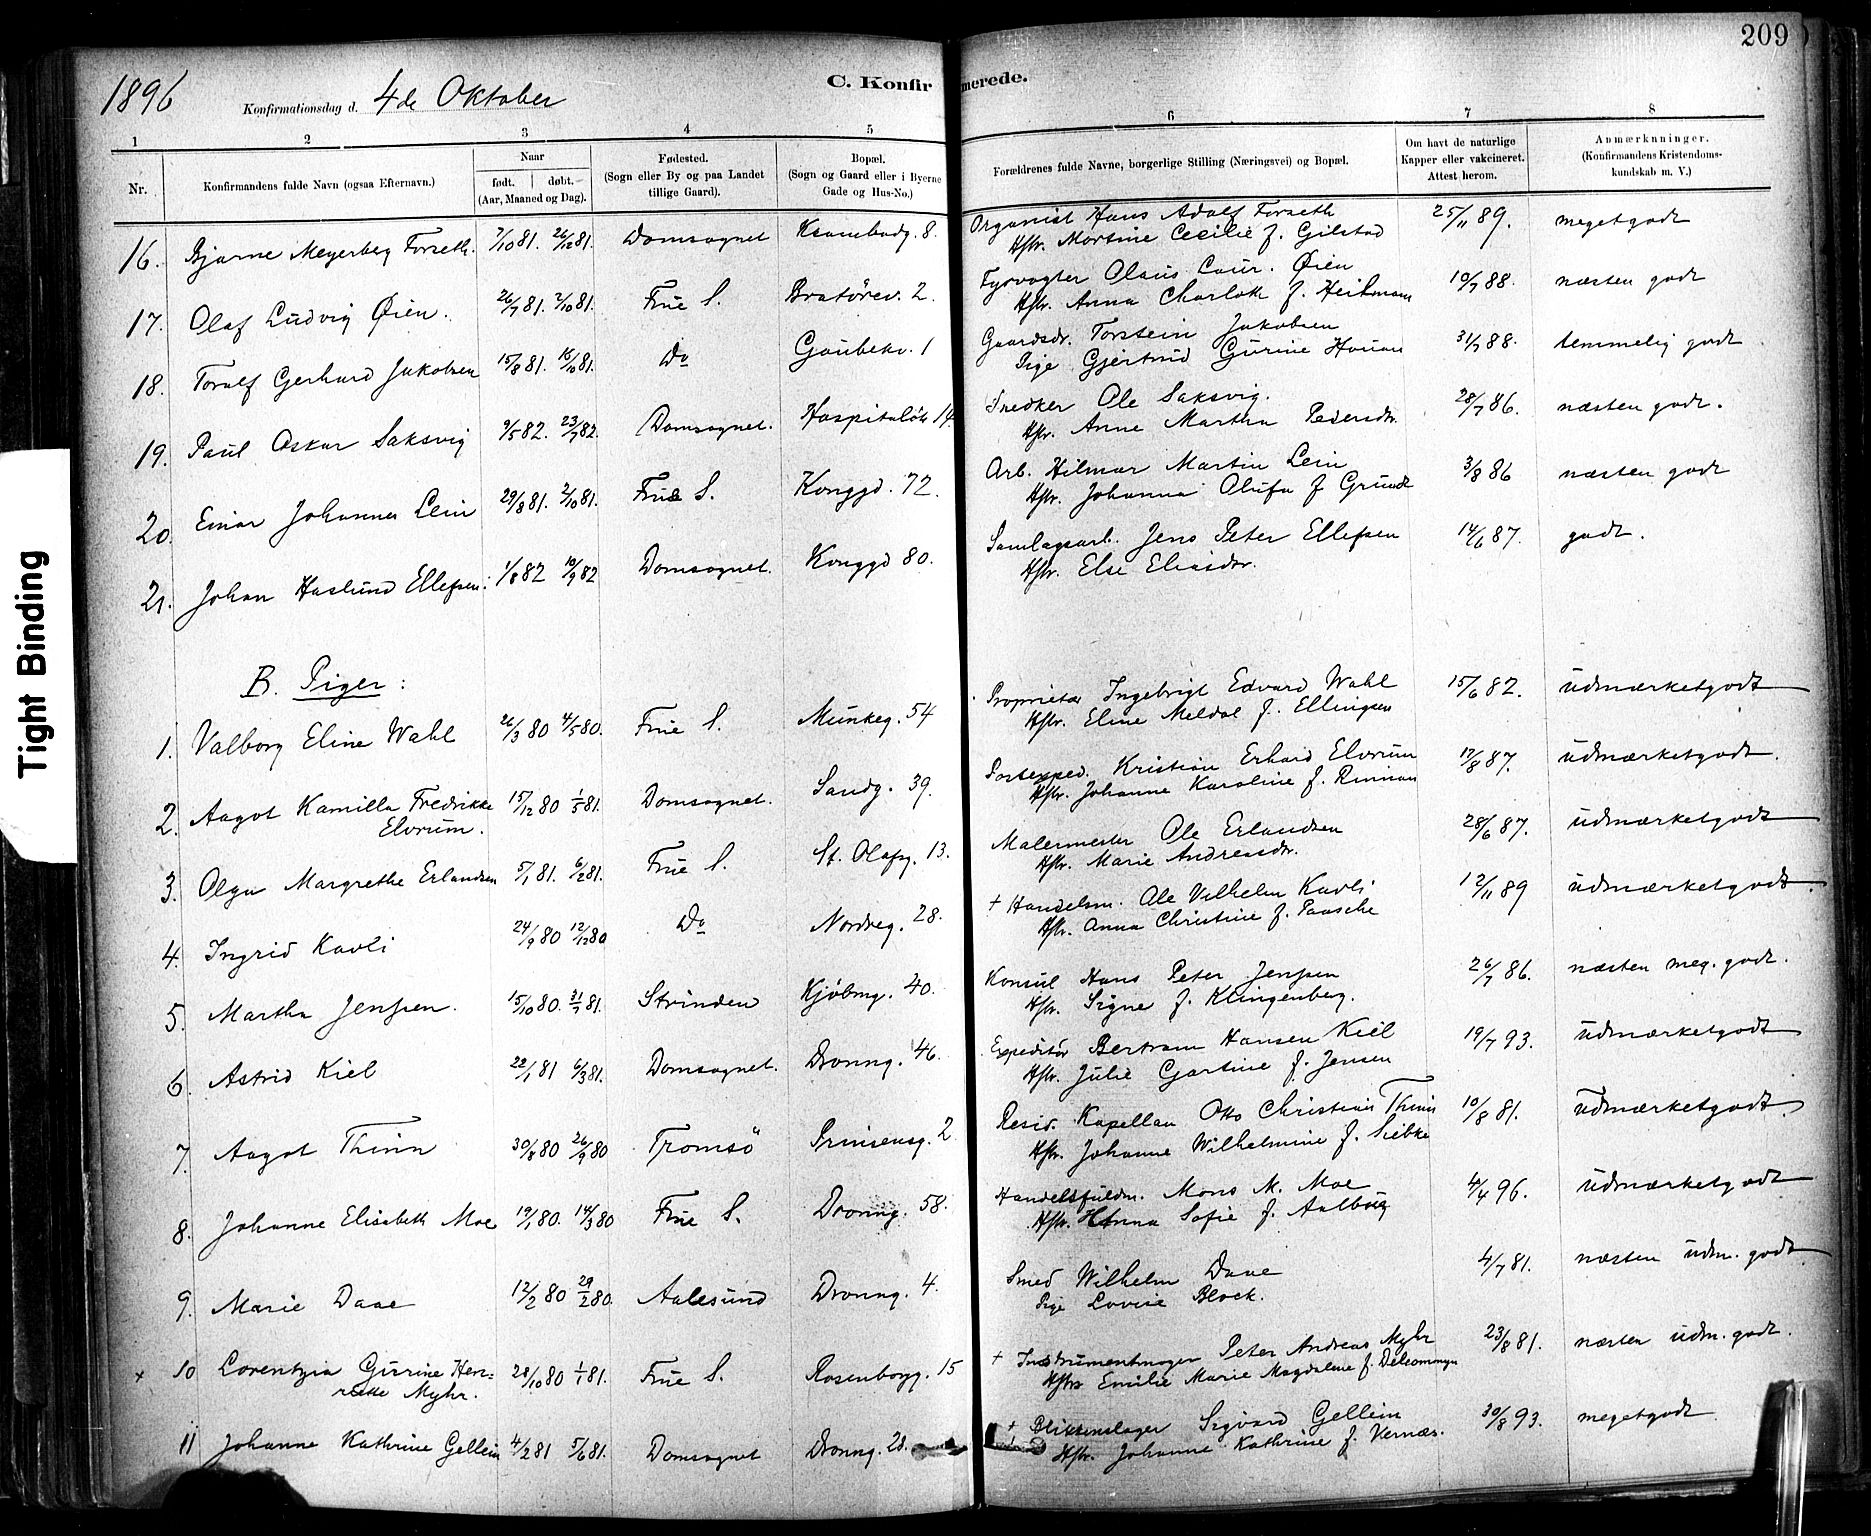 209
1896
Konfirmationsdag d. 4de Oktober
C. Konfirmerede.
1 2 3 4 5 6 7 8
Nr.
Konfirmandens fulde Navn (ogsaa Efternavn.)
Naar
født. døbt.
(Aar, Maaned og Dag).
Fødested.
(Sogn eller By og paa Landet
tillige Gaard).
Bopæl.
(Sogn og Gaard eller i Byerne
Gade og Hus-No.)
Forældrenes fulde Navne, borgerlige Stilling (Næringsvei) og Bopæl.
Om havt de naturlige
Kapper eller vakcineret.
Attest herom.
Anmærkninger.
(Konfirmandens Kristendoms-
kundskab m. V.)
16. Bjarne Meyerberg Forseth. 7/10 81. 26/12 81. Domsognet 8. Organist Hans Adolf Forseth 25/11 89. megetgodt
Hstr. Martine Cecilie f. Gilstad
17. Olaf Ludvig Øien. 26/7 81. 2/10 81. Frue S. Bratörev. 2. Fyrvogter Olaus Laur. Øien 10/7 88. næsten godt
Hstr. Anna Charlotte f. Heitmann
18. Toralf Gerhard Jakobsen 15/8 81. 16/10 81. Do Gaubekv. 1 Gaardsdr. Torstein Jakobsen 31/7 88. temmelig godt
Pige Gjertrud Gurine Houan
19. Paul Oskar Saksvig 9/5 82. 23/7 82. Domsognet. Hospitalsløk 14. Snedker Ole Saksvig. 28/7 86. næsten godt.
Hstr. Anne Martha Pedersdtr.
20. Einar Johannes Lein 29/8 81. 2/10 81. Frue S. Konggd. 72. Arb. Hilmar Martin Lein 3/8 86 næsten godt
Hstr. Johanna Olufa f Grundt
21. Johan Haslund Ellefsen. 1/8 82 10/9 82 Domsognet. Konggd 80. Samlagsarb. Jens Peter Ellefsen 14/6 87. godt.
Hstr. Else Eliasdtr.
B. Piger:
1. Valborg Eline Wahl 26/3 80 4/5 80. Frue S. Munkeg. 54 Proprietær Ingebrigt Edvard Wahl 15/6 82. udmærketgodt
Hstr. Eline Meldal f. Ellingsen
2. Aagot Kamilla Fredrikke 15/12 80 1/5 81. Domsognet. Sandg. 39. Postexped. Kristian Erhard Elvrum 12/8 87. udmærketgodt.
Elvrum. Hstr. Johanne Karoline f. Rinnan
3. Olga Margrethe Erlandsen 5/1 81. 6/2 81. Frue S. St. Olafsg. 13. Malermester Ole Erlandsen 28/6 87. udmærketgodt
Hstr. Marie Andreasdtr.
4. Ingrid Kavli 24/9 80 12/12 80 Do Nordreg. 28. + Handelsm. Ole Vilhelm Kavli 12/11 89 udmærketgodt.
Hstr. Anna Christine f. Paasche
5. Martha Jenssen. 15/10 80. 31/7 81. Strinden Kjöbmg. 40. Konsul Hans Peter Jenssen 26/7 86. næsten meg. godt.
Hstr. Signe f. Klingenberg.
6. Astrid Kiel 22/1 81 6/3 81. Domsognet. Dronng. 46. Expeditör Bertram Hansen Kiel 19/7 93. udmærketgodt
Hstr. Julie Gjertine f. Jensen
7. Aagot Thinn 30/8 80 26/9 80 Tromsö Prinsensg. 2 Resid. Kapellan Otto Christian Thinn 10/8 81. udmærketgodt.
Hstr. Johanne Wilhelmine f. Siebke
8. Johanne Elisabeth Moe 19/1 80. 14/3 80 Frue S. Dronng. 58. Handelsfuldm. Mons M. Moe 4/4 96. udmærketgodt
Hstr. Anna Sofie f. Aalborg
9. Marie Daae 12/2 80 29/2 80. Aalesund Dronng. 4. Smed Wilhelm Daae 4/7 81. næsten udm. godt
Pige Lovise Block.
x 10 Lorentzia Gurine Hen= 28/10 80 1/1 81. Frue S. Rosenborgg. 15 + Instrumentmager Peter Andreas Myhr 23/8 81. næsten udm. godt.
riette Myhr. Hstr. Emilie Marie Magdalene f.
11 Johanne Kathrine Gellein 4/2 81 5/6 81. Domsognet Dronng. 28. + Blikkenslager Sigvard Gellein 30/8 93. megetgodt
Hstr. Johanne Kathrine f. Vernæs.
Tight Binding